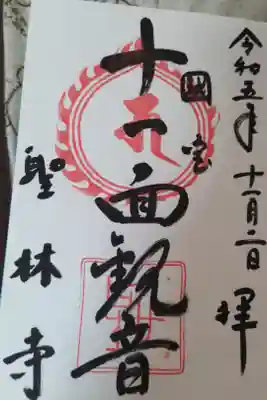 令和五年十一月二日拝
國宝
十一面観音
聖林寺